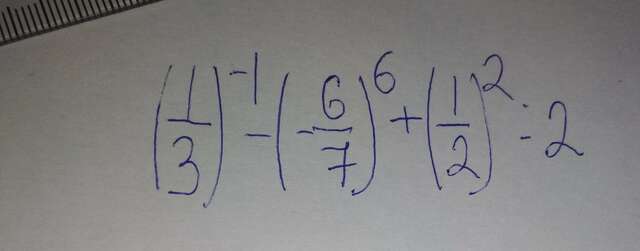 (1/3)^-1 - (-6/7)^6 + (1/2)^2 : 2